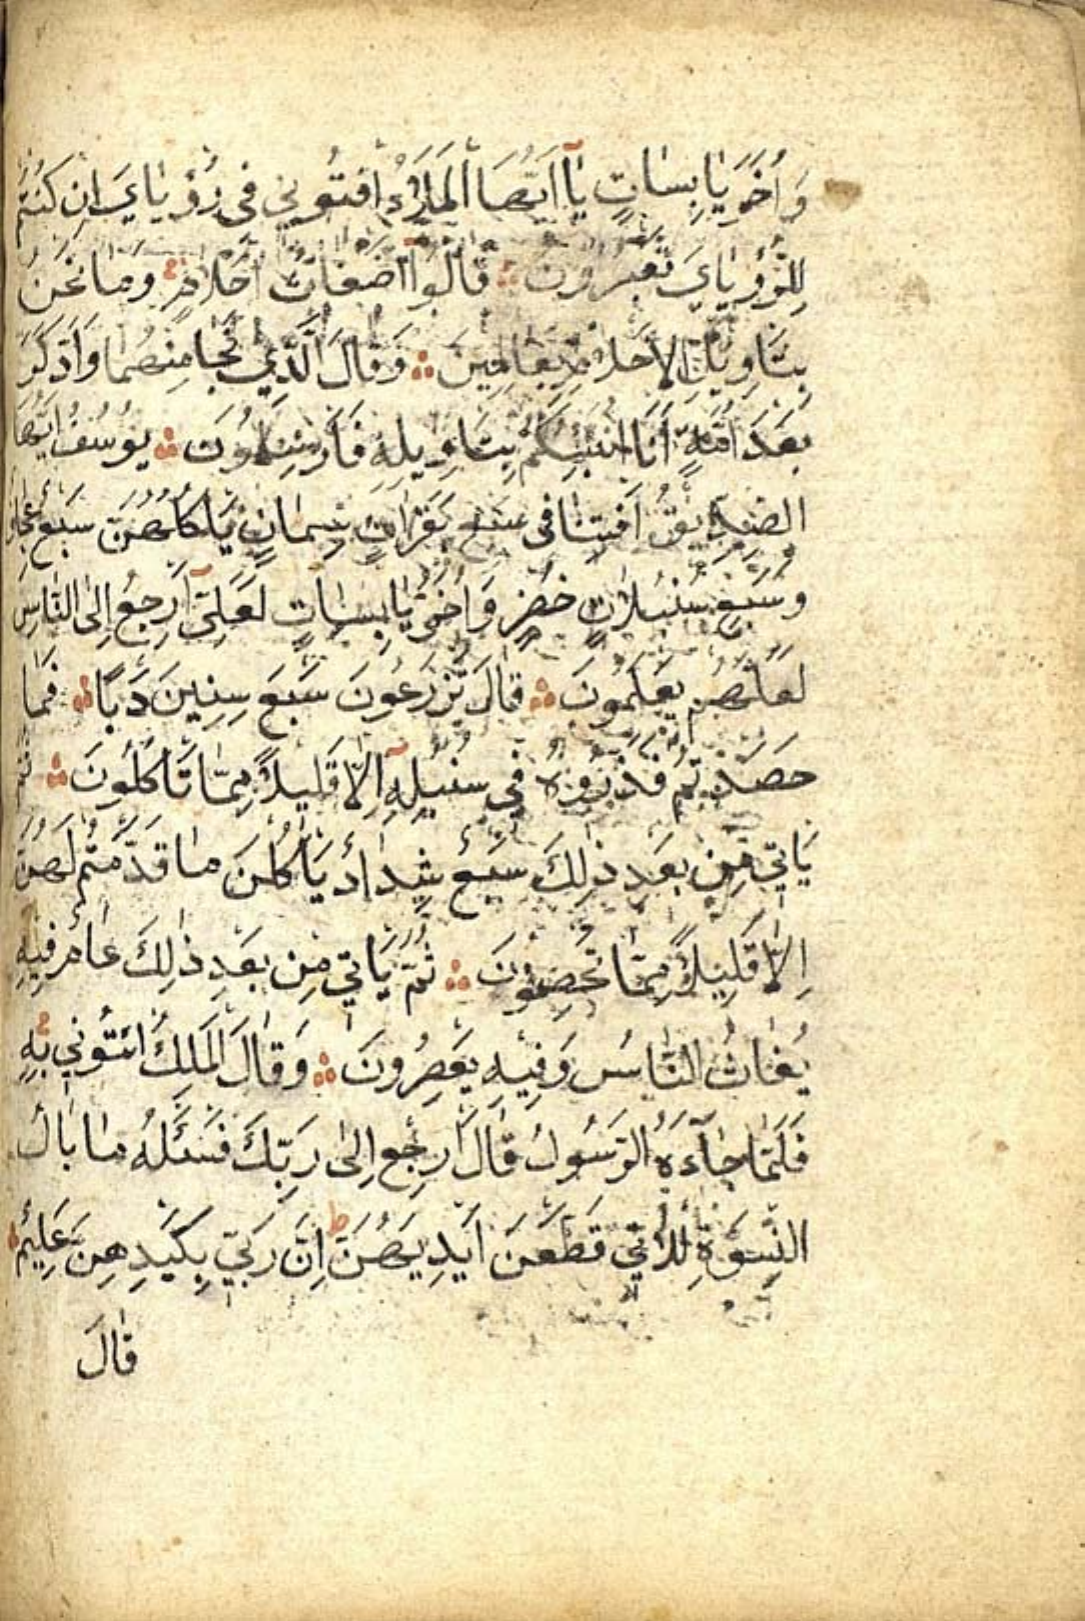 وَاُخَرَ يَابِسَاتٍ يَٓا اَيُّهَا الْمَلَاُ اَفْتُونِي فِي رُؤْيَايَ اِنْ كُنْتُمْ
لِلرُّؤْيَايَ تَعْبُرُونَ ۞ قَالُوٓا اَضْغَاثُ اَحْلَامٍ وَمَا نَحْنُ
بِتَاْوِيلِ الْاَحْلَامِ بِعَالِمِينَ ۞ وَقَالَ الَّذِي نَجَا مِنْهُمَا وَادَّكَرَ
بَعْدَ اُمَّةٍ اَنَا اُنَبِّئُكُمْ بِتَاْوِيلِهِ فَاَرْسِلُونَ ۞ يُوسُفُ اَيُّهَا
الصِّدِّيقُ اَفْتِنَا فِي سَبْعِ بَقَرَاتٍ سِمَانٍ يَاْكُلُهُنَّ سَبْعٌ عِجَافٌ
وَسَبْعِ سُنْبُلَاتٍ خُضْرٍ وَاُخَرَ يَابِسَاتٍ لَعَلِّٓي اَرْجِعُ اِلَى النَّاسِ
لَعَلَّهُمْ يَعْلَمُونَ ۞ قَالَ تَزْرَعُونَ سَبْعَ سِنِينَ دَبًا ۞ فَمَا
حَصَدْتُمْ فَذَرُوهُ فِي سُنْبُلِهِٓ اِلَّا قَلِيلًا مِمَّا تَاْكُلُونَ ۞ ثُمَّ
يَاْتِي مِنْ بَعْدِ ذٰلِكَ سَبْعٌ شِدَادٌ يَاْكُلْنَ مَا قَدَّمْتُمْ لَهُنَّ
اِلَّا قَلِيلًا مِمَّا تُحْصِنُونَ ۞ ثُمَّ يَاْتِي مِنْ بَعْدِ ذٰلِكَ عَامٌ فِيهِ
يُغَاثُ النَّاسُ وَفِيهِ يَعْصِرُونَ ۞ وَقَالَ الْمَلِكُ ائْتُونِي بِهِ
فَلَمَّا جَٓاءَهُ الرَّسُولُ قَالَ ارْجِعْ اِلٰى رَبِّكَ فَسْئَلْهُ مَا بَالُ
النِّسْوَةِ للَّاتِي قَطَّعْنَ اَيْدِيَهُنَّ ط اِنَّ رَبِّي بِكَيْدِهِنَّ عَلِيمٌ ۞
قَالَ